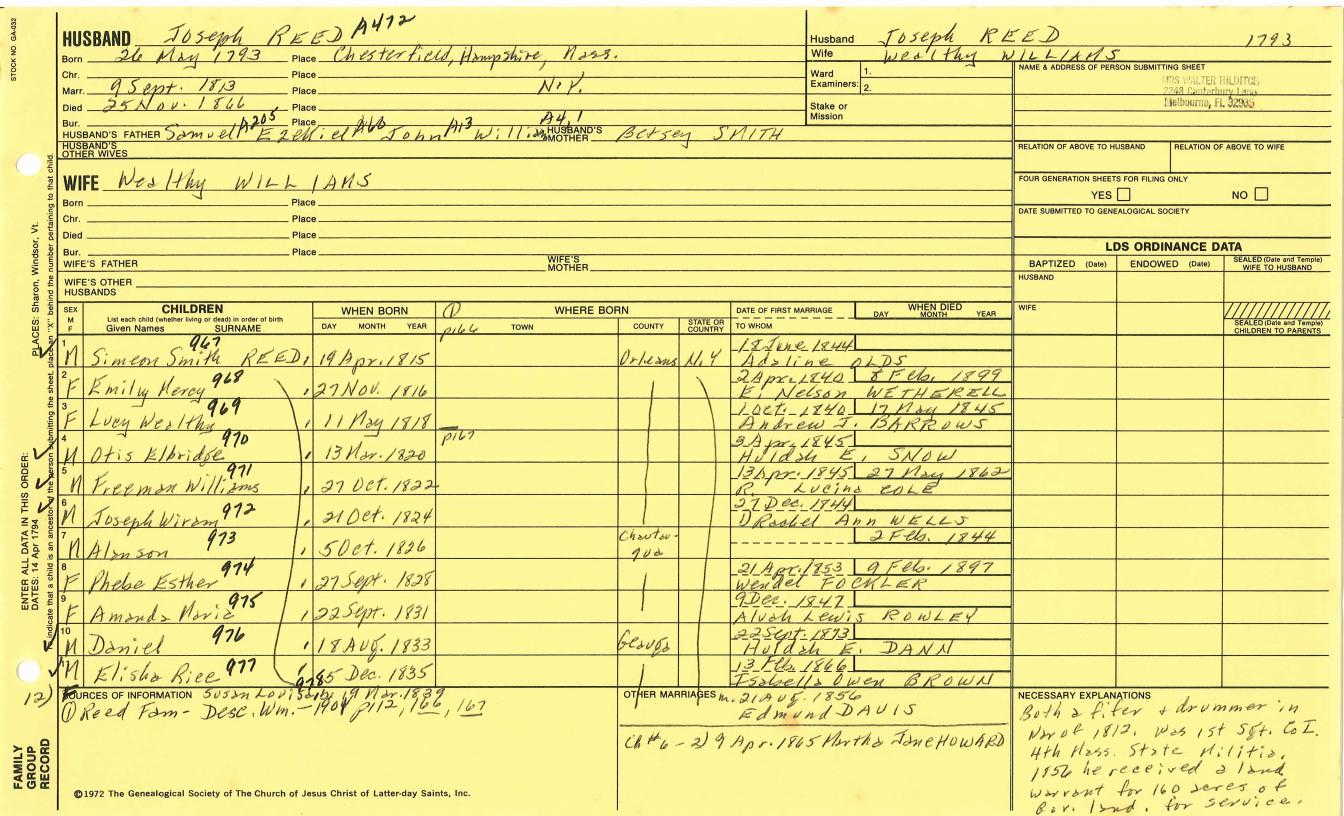 STOCK NO. GA-032
HUSBAND Joseph REED A472
Born 26 May 1793 Place Chesterfield, Hampshire, Mass.
Chr. Place
Marr. 9 Sept. 1813 Place N.Y.
Died 25 Nov. 1866 Place
Bur. Place
HUSBAND'S FATHER Samuel A205 Ezekiel A60 John A13 William A4,1 HUSBAND'S MOTHER Betsey SMITH
HUSBAND'S OTHER WIVES
Husband Joseph REED 1793
Wife Wealthy WILLIAMS
Ward Examiners: 1.
2.
Stake or Mission
NAME & ADDRESS OF PERSON SUBMITTING SHEET
MRS WALTER HILDITCH
2248 Canterbury Lane
Melbourne, FL 32935
RELATION OF ABOVE TO HUSBAND RELATION OF ABOVE TO WIFE
FOUR GENERATION SHEETS FOR FILING ONLY
YES NO
DATE SUBMITTED TO GENEALOGICAL SOCIETY
LDS ORDINANCE DATA
BAPTIZED (Date) ENDOWED (Date) SEALED (Date and Temple) WIFE TO HUSBAND
HUSBAND
WIFE
SEALED (Date and Temple) CHILDREN TO PARENTS
WIFE Wealthy WILLIAMS
Born Place
Chr. Place
Died Place
Bur. Place
WIFE'S FATHER WIFE'S MOTHER
WIFE'S OTHER HUSBANDS
SEX M F CHILDREN List each child (whether living or dead) in order of birth Given Names SURNAME WHEN BORN DAY MONTH YEAR WHERE BORN TOWN COUNTY STATE OR COUNTRY DATE OF FIRST MARRIAGE TO WHOM WHEN DIED DAY MONTH YEAR
① p166
1 M Simeon Smith REED, 967 19 Apr. 1815 Orleans N.Y 18 June 1844
Adaline OLDS
2 F Emily Mercy 968 27 Nov. 1816 2 Apr. 1840 8 Feb. 1899
E. Nelson WETHERELL
3 F Lucy Wealthy 969 11 May 1818 1 Oct. 1840 17 May 1845
Andrew J. BARROWS
p167
4 M Otis Elbridge 970 13 Mar. 1820 3 Apr. 1845
Huldah E. SNOW
5 M Freeman Williams 971 27 Oct. 1822 13 Apr. 1845 27 May 1862
R. Lucina COLE
6 M Joseph Wiram 972 21 Oct. 1824 27 Dec. 1844
1) Rachel Ann WELLS
7 M Alanson 973 5 Oct. 1826 Chautauqua 2 Feb. 1844
8 F Phebe Esther 974 27 Sept. 1828 21 Apr. 1853 9 Feb. 1897
Wendel FOCKLER
9 F Amanda Maria 975 22 Sept. 1831 9 Dec. 1847
Alvah Lewis ROWLEY
10 M Daniel 976 18 Aug. 1833 Geauga 22 Sept. 1873
Huldah E. DANN
M Elisha Rice 977 5 Dec. 1835 13 Feb. 1866
Isabella Owen BROWN
12) F Susan Louisa b. 19 Mar. 1839 978
SOURCES OF INFORMATION
① Reed Fam- Desc. Wm. - 1901 p112, 166, 167
OTHER MARRIAGES m. 21 Aug. 1856
Edmund DAVIS
Ch #6 - 2) 9 Apr. 1865 Martha Jane HOWARD
NECESSARY EXPLANATIONS
Both a fifer & drummer in
War of 1812. Was 1st Sgt. Co I.
4th Mass. State Militia.
1856 he received a land
warrant for 160 acres of
land. for service.
©1972 The Genealogical Society of The Church of Jesus Christ of Latter-day Saints, Inc.
FAMILY GROUP RECORD
ENTER ALL DATA IN THIS ORDER:
DATES: 14 Apr 1794 PLACES: Sharon, Windsor, Vt.